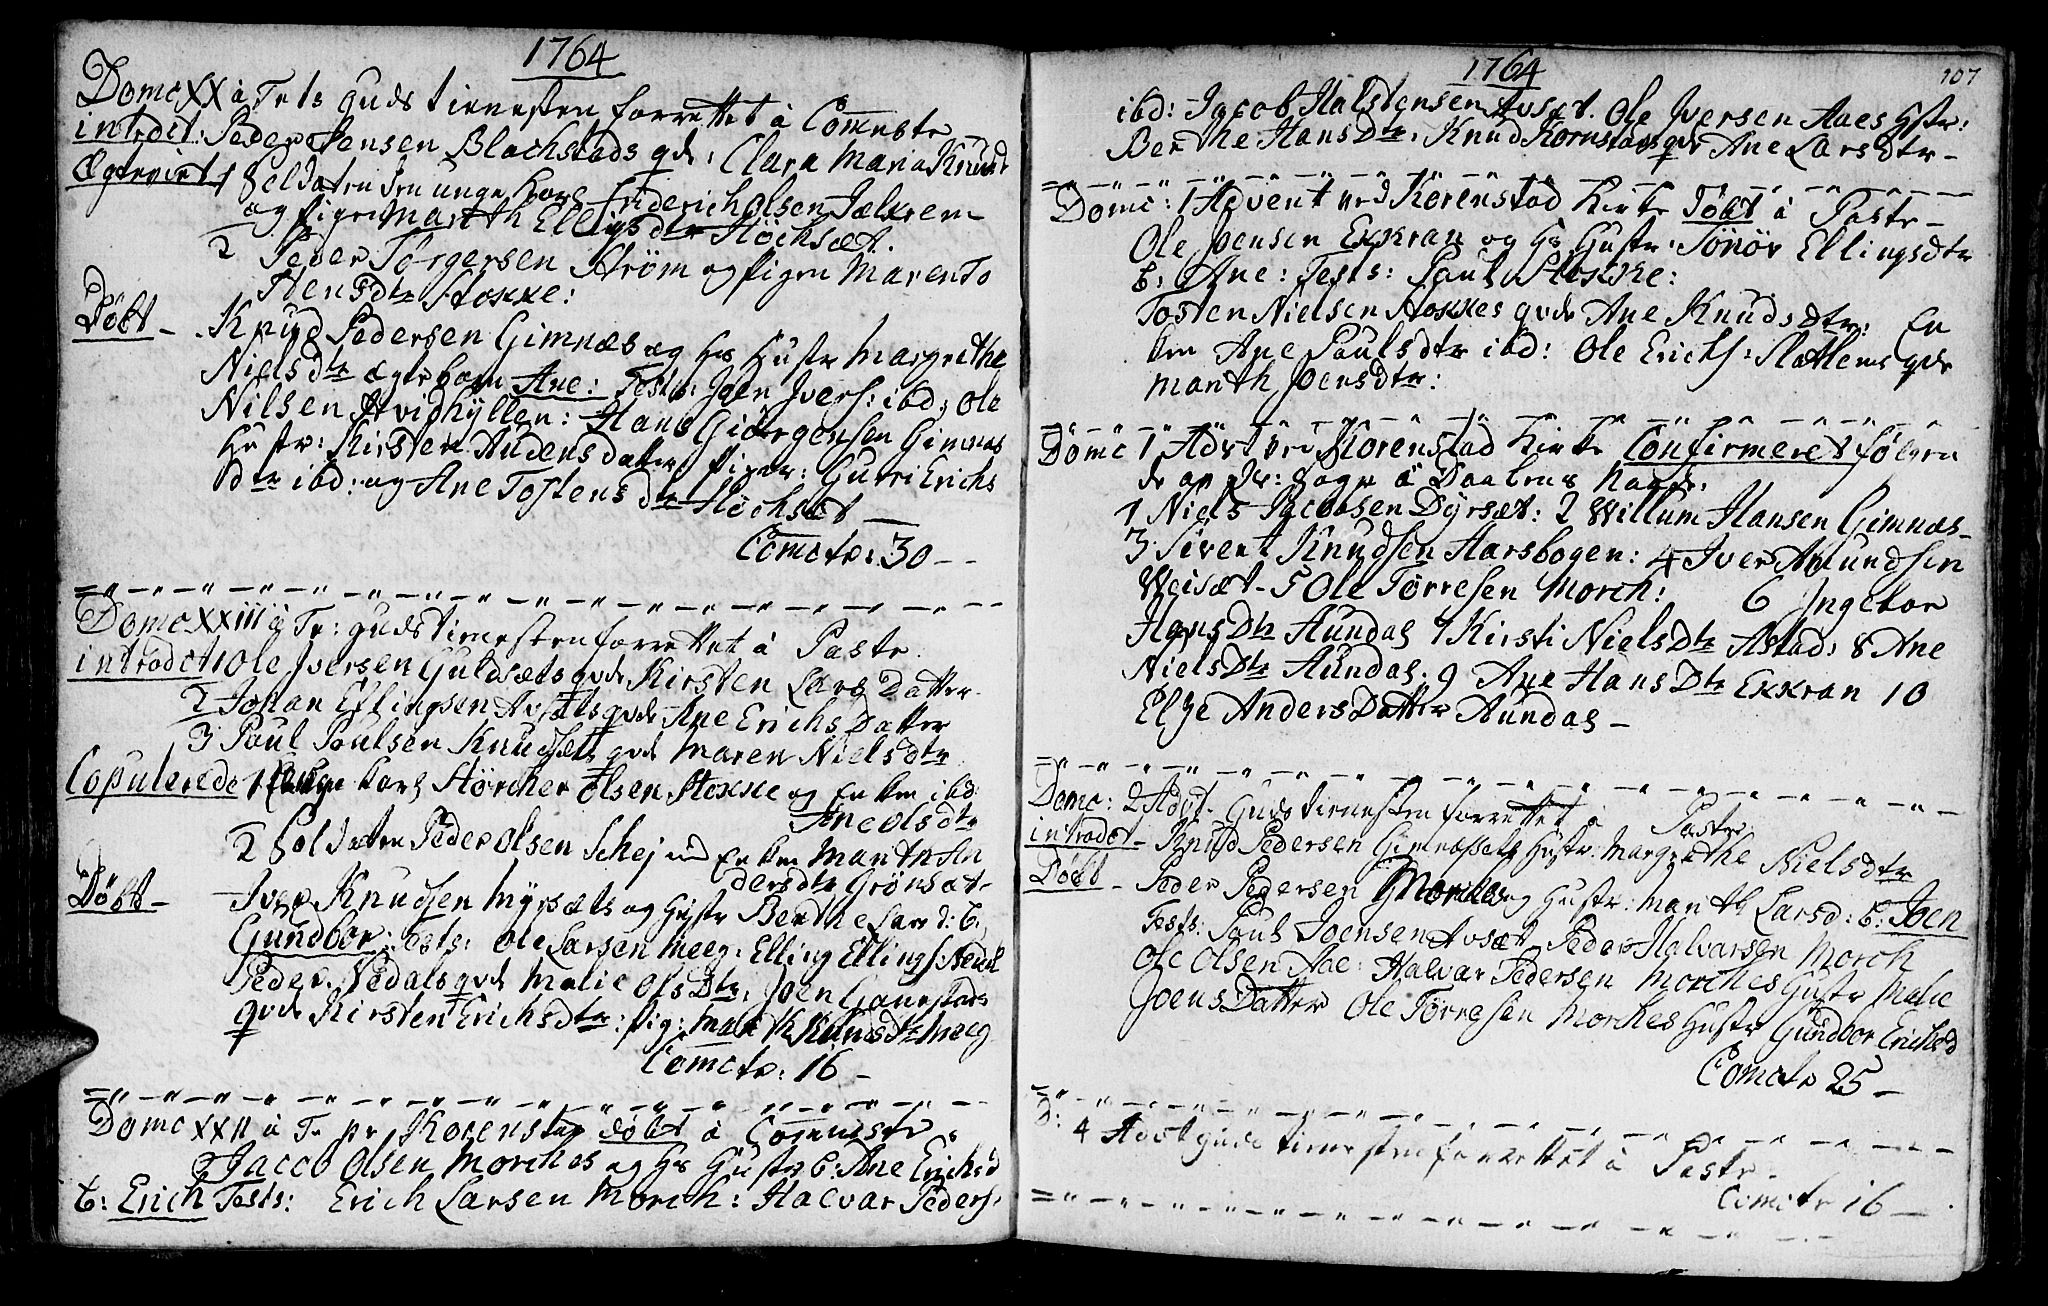 1764
Domc XX à Trts Guds tienesten forrettet à Comnstr
introdct: Peder Jensen Blachstads qde: Clara Maria Knuds
Ægteviet 1 Soldaten den unge Karl Friderich Olsen Jælkrem
og Pigen Marth Ellings dtr Høchsæt.
2 Peder Torgersen Strøm og Pigen Maren To
stens dtr Stokke:
Döbt - Knud Pedersen Gimnæs og Hs Hustr Margrethe
Niels dtr ægte barn Ane: Test: Joen Ivers: ibd: Ole
Nilsen Hustr: Kirsten Andens datter Piger: Guri Erichs
dtr ibd: og Ane Tostens dtr Høchsæt
Comctr: 30 --
Domc XXIII à Tr: guds tienesten forrettet à Pastr.
introdct 1 Ole Iversen Guldsæts qde Kirsten Lars Datter
2 Johan Ellingsen Avsæts qde Ane Erichs Datter
3 Poul Poulsen Knudsæts qde Maren Niels dtr
Copulerede 1 unge Karl Störcher Olsen Stokke og Enken ibd:
Ane Ols dtr
2 Soldaten Peder Olsen Schej med Enken Marth An
dersdtr Grönsæt-
Döbt - Iver Knudsen Myrsæts og Hustr Berthe Lars d: b:
Gundbor: Tests: Ole Larsen Meeg: Elling Ellings: Nedal
Peder Nedals qde Malie Ols Dtr: Joen Gaanestads
qde Kirsten Erichsdtr: Pig: Marth Knuds dtr Meeg
Comctr: 16 -
Domc XXII à Tr pr Korenstad döbt à Comnistr.
Jacob Olsen Morches og Hs Hustr b: Ane Erichs d
b: Erich Tests: Erich Larsen Morch: Halvar Peders:
1764
107
ibd: Jacob Halstensen Avsæt. Ole Iversen Aaes Hstr:
Berthe Hans Dtr: Knud Kornstads qde Ane Lars dtr -
Domc: 1 Advent ved Korenstad Kirke Töbt à Pastr -
Ole Joensen Exkran og Hs Hustr: Sönöv Ellingsdtr
b: Ane: Tests: Paul Stokke:
Tosten Nielsen Stokkes qvde Ane Knuds dtr: En
ken Ane Pouls dtr ibd: Ole Erichs: Slatlems qde
Marth Joens dtr:
Domc 1 Advt ved Korenstad Kirke Confirmeret følgen
de
1 Niels Jacobsen Dyrsæt: 2 Willum Hansen Gimnæs -
3 Sivert Knudsen Harsbogen: 4 Iver Amundsen
Weisæt - 5 Ole Törresen Morch: 6 Ingebor
Hans Dtr Aundas 7 Kirsti Niels Dtr Astad: 8 Ane
Niels Dtr Aundas. 9 Ane Hans Dtr Exkran 10
Elje Anders Datter Aundas -
Domc: 2 Advt. Guds tienesten forrettet à Pastr
introdct - Knud Pedersen Gimnæssets Hustr: Margrethe Niels dtr
Döbt - Peder Pedersen Morches og Hustr: Marth Larsd: b: Joen
Tests: Poul Joensen Avsæt Peder Halvarsen Morch
Ole Olsen Aae: Halvar Pedersen Morches Hustr Malie
Joens Datter Ole Törresen Morches Hustr Gundbor Erichsd
Comctr 25 -
D: 4 Advt guds tienesten forrettet à Pastr -
Comctr 16 -